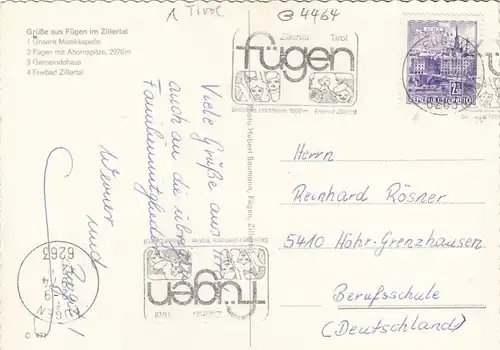 Tirol
4464
Grüße aus Fügen im Zillertal
1 Unsere Musikkapelle
2 Fügen mit Ahornspitze, 2976m
3 Gemeindehaus
4 Freibad Zillertal
Viele Grüße aus
auch an die übrigen
Familienmitglieder
Werner und
Zillertal Tirol
fügen
Freibad Zillertal
Foto Hubert Baumann, Fügen, Zillertal
Herrn
Reinhard Rösner
5410 Höhr-Grenzhausen
Berufsschule
(Deutschland)
6263
Zillertal Tirol
fügen
REPUBLIK ÖSTERREICH
C 471